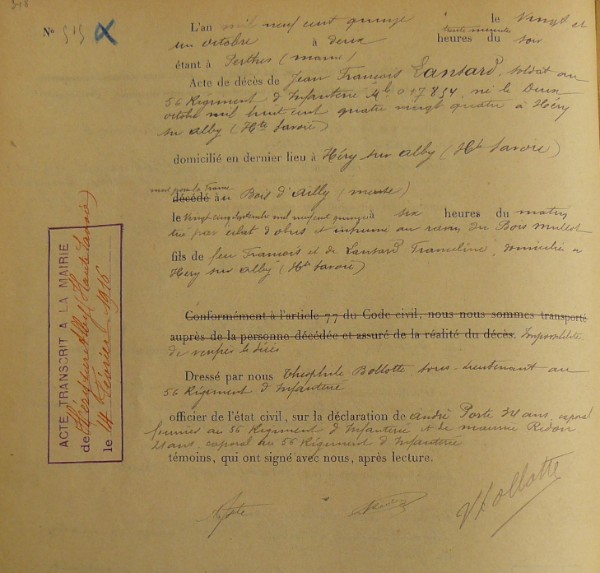 N° 515
L'an mil neuf cent quinze le vingt et
un octobre à deux heures trente minutes du soir
étant à Perthes (marne)
Acte de décès de Jean François Lansard, soldat au
56 Régiment d'Infanterie Mle 017854 né le Deux
octobre mil huit cent quatre vingt quatre à Héry
sur Alby (Hte Savoie)
domicilié en dernier lieu à Héry sur Alby (Hte Savoie)
mort pour la France
décédé au Bois d'Ailly (meuse)
le vingt cinq septembre mil neuf cent quinze à six heures du matin,
tué par éclat d'obus et inhumé au ravin du Bois mullot
fils de feu François et de Lansard Franceline, domiciliée à
Héry sur Alby (Hte Savoie)
Conformément à l'article 77 du Code civil, nous nous sommes transporté
auprès de la personne décédée et assuré de la réalité du décès. Impossibilité
de le décès
Dressé par nous Théophile Bollotte sous-Lieutenant au
56 Régiment d'Infanterie
officier de l'état civil, sur la déclaration de André Porte 24 ans, caporal
fourrier au 56 Régiment d'Infanterie et de maurice Redon
21 ans, caporal au 56 Régiment d'Infanterie
témoins, qui ont signé avec nous, après lecture.
Bollotte
ACTE TRANSCRIT A LA MAIRIE
de Héry sur Alby (Haute Savoie)
le 14 Février 1916